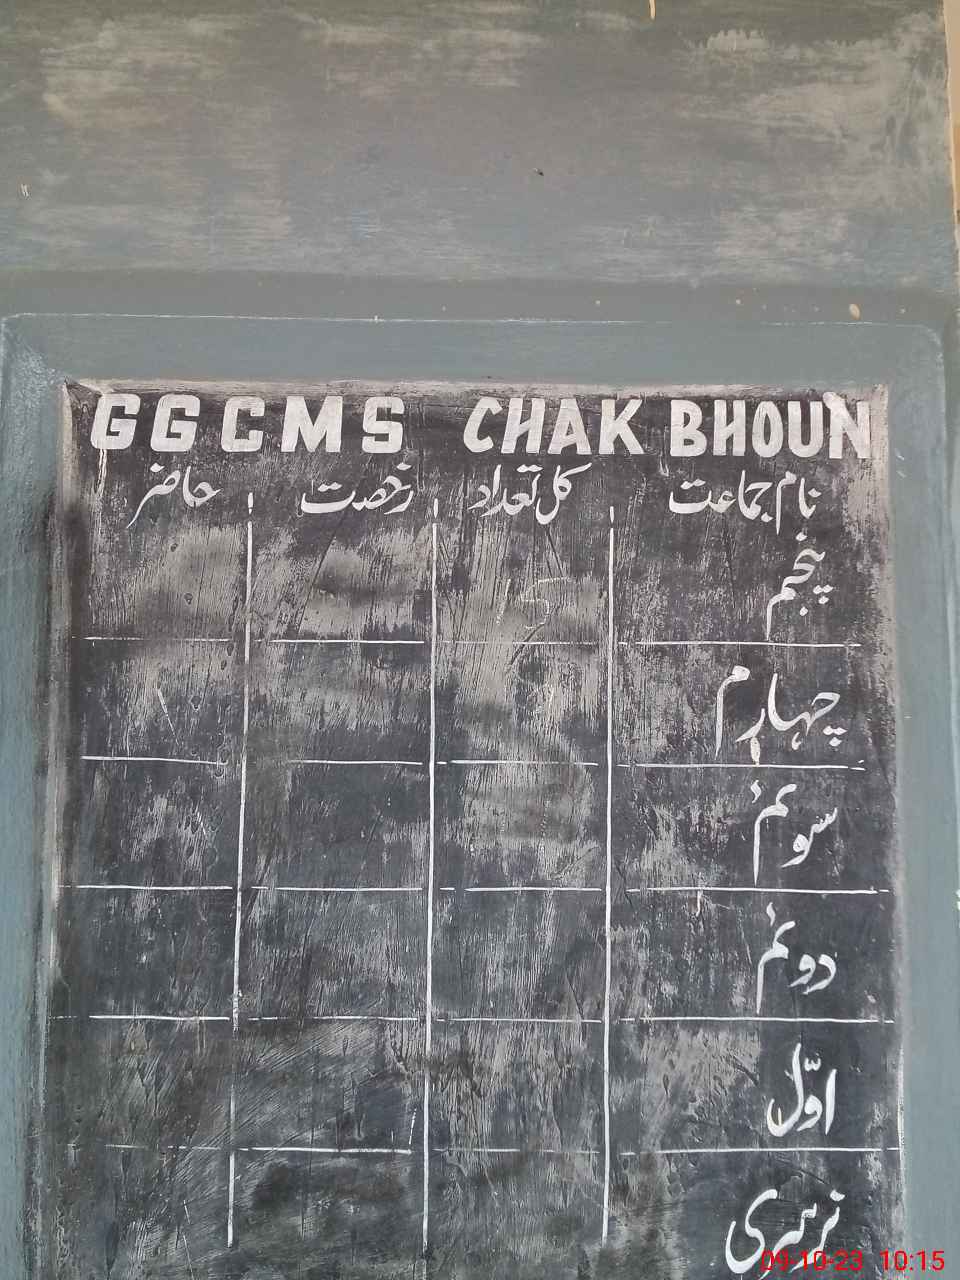 GGCMS CHAK BHOUN
نام جماعت کل تعداد رخصت حاضر
پنجم
چہارم
سوئم
دوئم
اوّل
نرسری
09-10-23 10:15